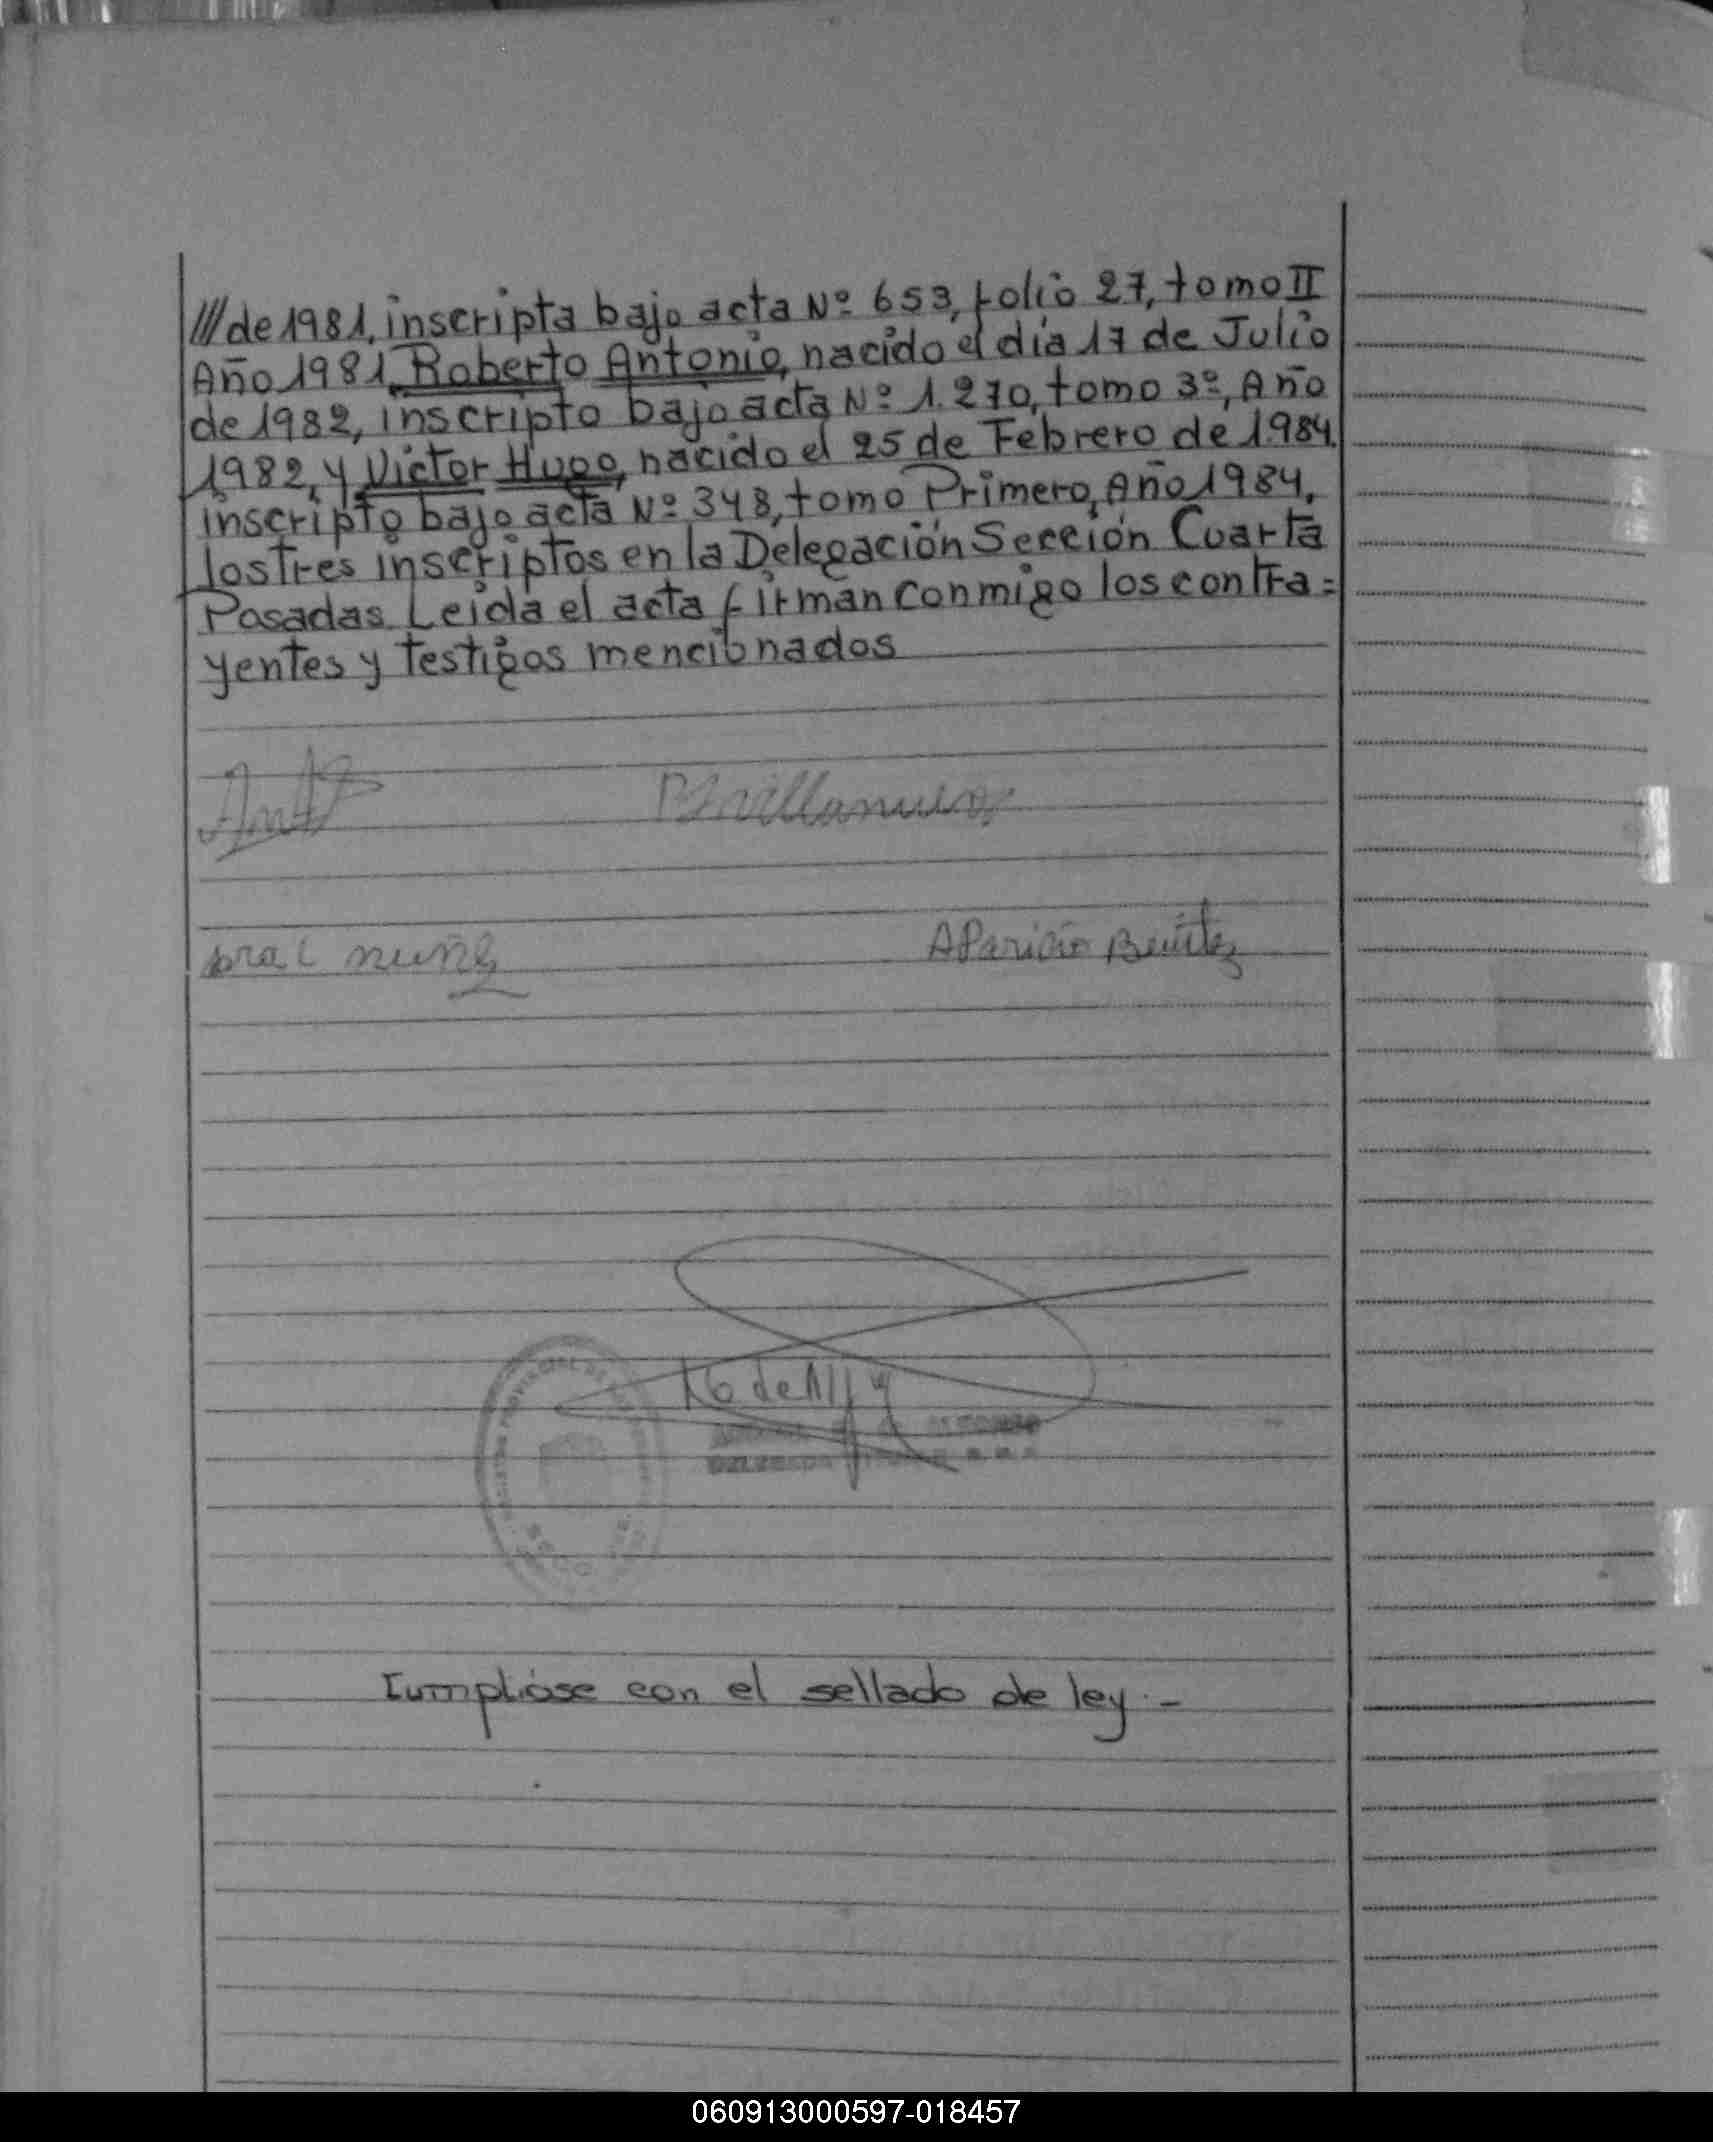 ///de 1981, inscripta bajo acta Nº 653, folio 27, tomo II
Año 1981, Roberto Antonio, nacido el día 17 de Julio
de 1982, inscripto bajo acta Nº 1.270, tomo 3º, Año
1982, y Victor Hugo, nacido el 25 de Febrero de 1984,
inscripto bajo acta Nº 348, tomo Primero, Año 1984,
los tres inscriptos en la Delegación Sección Cuarta
Posadas. Leida el acta firman conmigo los contra=
yentes y testigos mencionados
Aparicio Benitez
Cumplióse con el sellado de ley.-
060913000597-018457